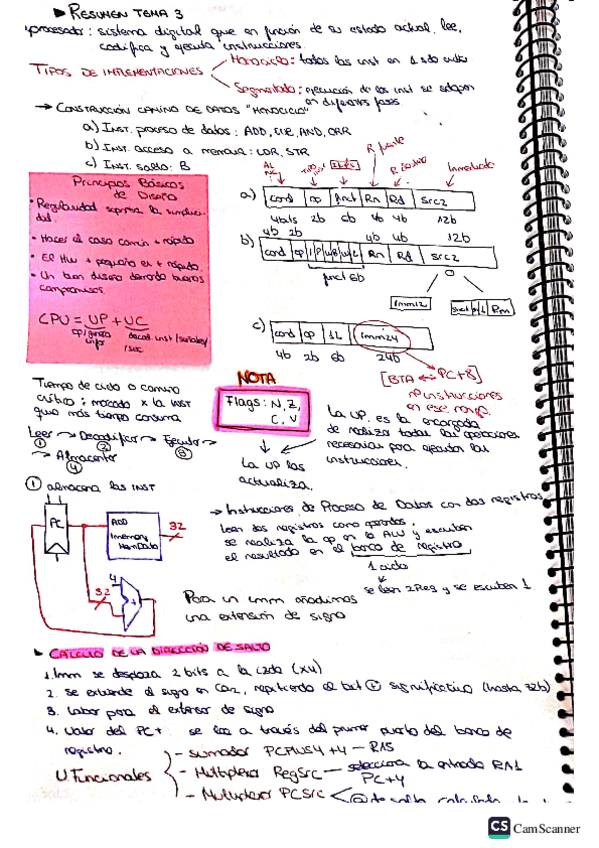 ▶ RESUMEN TEMA 3
procesador: sistema digital que en función de su estado actual, lee,
codifica y ejecuta instrucciones.
TIPOS DE IMPLEMENTACIONES
Monociclo: todas las inst en 1 solo ciclo
Segmentado: ejecución de las inst se
en diferentes fases
→ CONSTRUCCIÓN CAMINO DE DATOS "MONOCICLO"
a) INST. proceso de datos: ADD, SUB, AND, ORR
b) INST. acceso a memoria: LDR, STR
c) INST. salto: B
Principios Básicos
de Diseño
• Regularidad
• Hacer el caso común + rápido
• El HW + pequeño es + rápido.
• Un buen diseño buenos
compromisos.
CPU = UP + UC
R fuente
Inmediato
a) cond op funct Rn Rd Src2
4bits 2b 6b 4b 4b 12b
4b 2b 4b 4b 12b
b) cond op Rn Rd Src2
funct 6b
imm12
Rm
c) cond op 1L imm24
4b 2b 6b 24b
[BTA ← PC+8]
nº instrucciones
en ese rango.
Tiempo de ciclo o camino
crítico: marcado x la inst
que más tiempo consuma
Leer → Decodificar → Ejecutar →
① ② ③
→ Almacenar
④
NOTA
Flags: N, Z,
C, V
La UP las
actualiza.
La UP. es la encargada
de realizar todas las operaciones
necesarias para ejecutar las
instrucciones.
① almacena las INST
PC
ADD
32
4
32
+
→ Instrucciones de Proceso de Datos con dos registros
Leen dos registros como operandos,
se realiza la op en la ALU y escriben
el resultado en el banco de registro
1 ciclo
se leen 2Reg y se escriben 1.
Para un imm añadimos
una extensión de signo
CÁLCULO DE LA DIRECCIÓN DE SALTO
1. Imm se desplaza 2 bits a la izda (x4)
2. se extiende el signo en Ca2, repitiendo el bit ⊕ significativo (hasta 32b)
3. Labor para el extensor de signo
4. Valor del PC+ se lee a través del primer puerto del banco de
registro.
U Funcionales
- sumador PCPLUS4 +4 — R15
- Multiplexor RegSrc — selecciona la entrada RA1
PC+4
- Multiplexor PCSrc
CS CamScanner